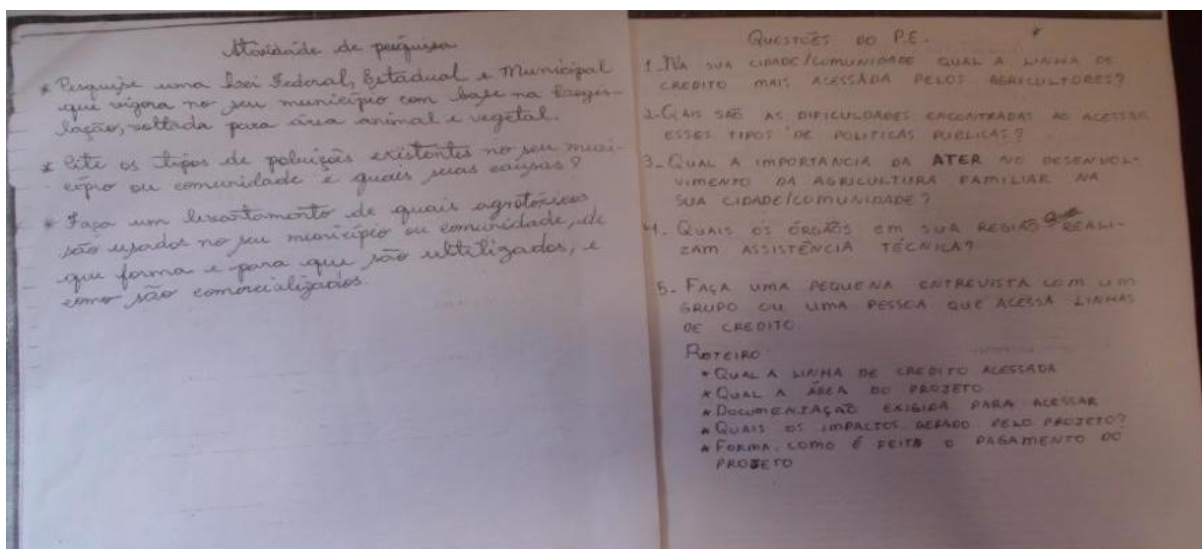 Atividade de pesquisa
* Pesquise uma Lei Federal, Estadual e Municipal
que vigora no seu município com base na Legis-
lação, voltada para área animal e vegetal.
* Cite os tipos de poluição existentes no seu muni-
cípio ou comunidade e quais suas causas?
* Faça um levantamento de quais agrotóxicos
são usados no seu município ou comunidade, de
que forma e para que são ultilizados, e
como são comercializados.
QUESTÕES DO P.E.
1. NA SUA CIDADE/COMUNIDADE QUAL A LINHA DE
CREDITO MAIS ACESSADA PELOS AGRICULTORES?
2- QAIS SÃO AS DIFICULDADES ENCONTRADAS AO ACESSAR
ESSES TIPOS DE POLITICAS PUBLICAS?
3- QUAL A IMPORTANCIA DA ATER NO DESENVOL-
VIMENTO DA AGRICULTURA FAMILIAR NA
SUA CIDADE/COMUNIDADE?
4. QUAIS OS ÓRGÃOS EM SUA REGIÃO QUE REALI-
ZAM ASSISTÊNCIA TÉCNICA?
5- FAÇA UMA PEQUENA ENTREVISTA COM UM
GRUPO OU UMA PESSOA QUE ACESSA LINHAS
DE CREDITO.
ROTEIRO
* QUAL A LINHA DE CREDITO ACESSADA
* QUAL A ÁREA DO PROJETO
* DOCUMENTAÇÃO EXIGIDA PARA ACESSAR
* QUAIS OS IMPACTOS GERADO PELO PROJETO?
* FORMA, COMO É FEITA O PAGAMENTO DO
PROJETO